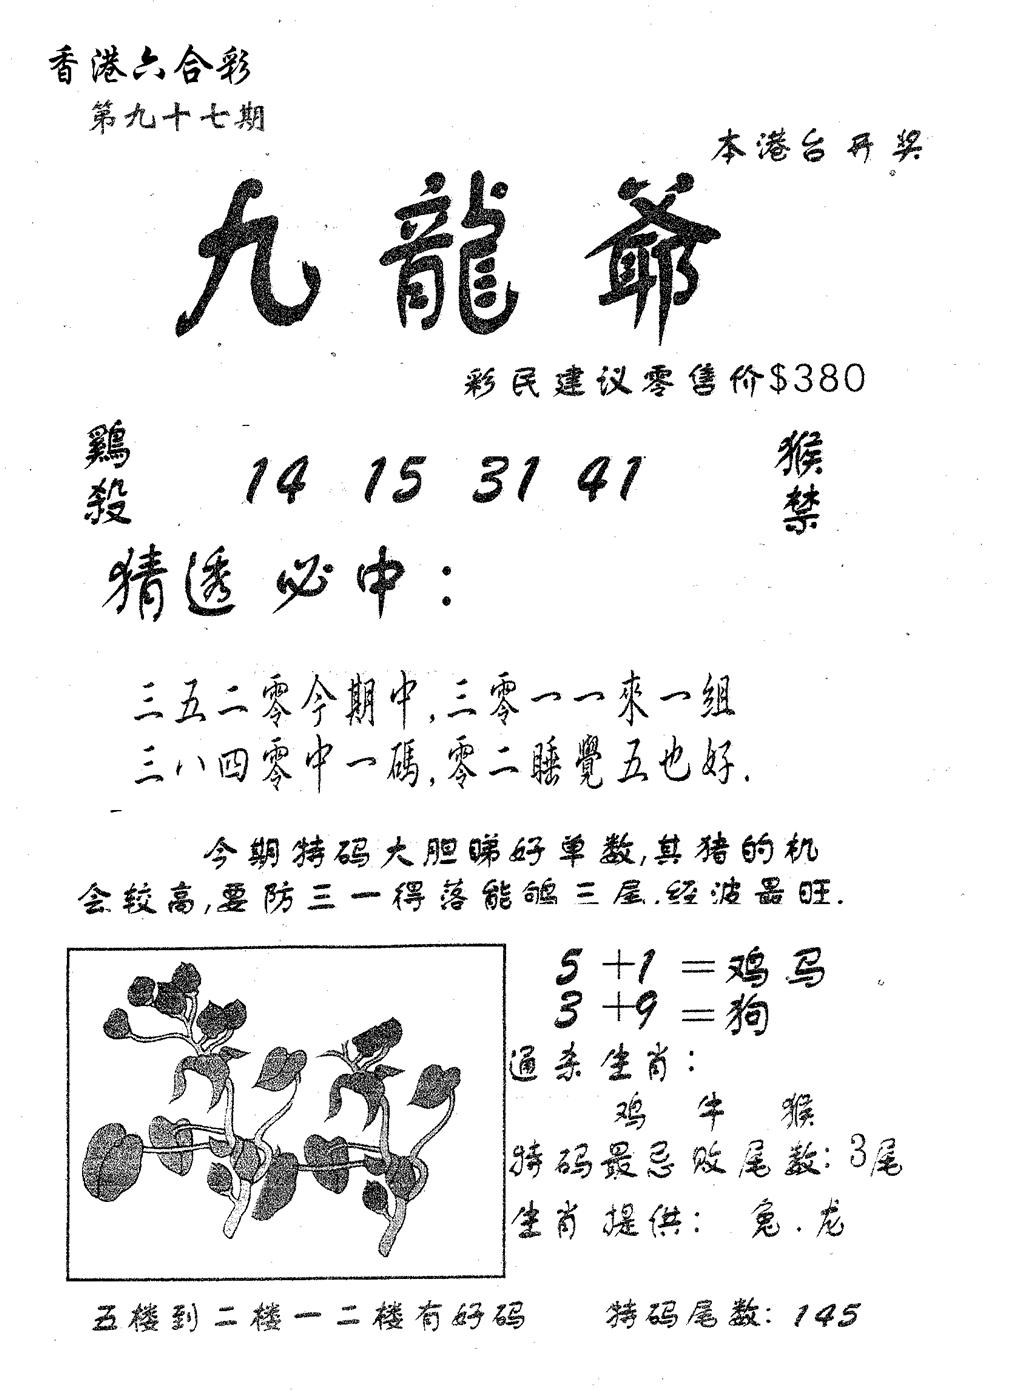 香港六合彩
第九十七期
本港台开奖
九龍爺
彩民建议零售价$380
鷄殺 14 15 31 41 猴禁
猜透必中：
三五二零今期中,三零一一來一組
三八四零中一碼,零二睡覺五也好.
今期特码大胆睇好单数,其猪的机
会较高,要防三一得落能鸲三尾.经波最旺.
5+1=鸡马
3+9=狗
通杀生肖：
鸡 牛 猴
特码最忌败尾数：3尾
生肖提供： 兔.龙
五楼到二楼一二楼有好码 特码尾数：145